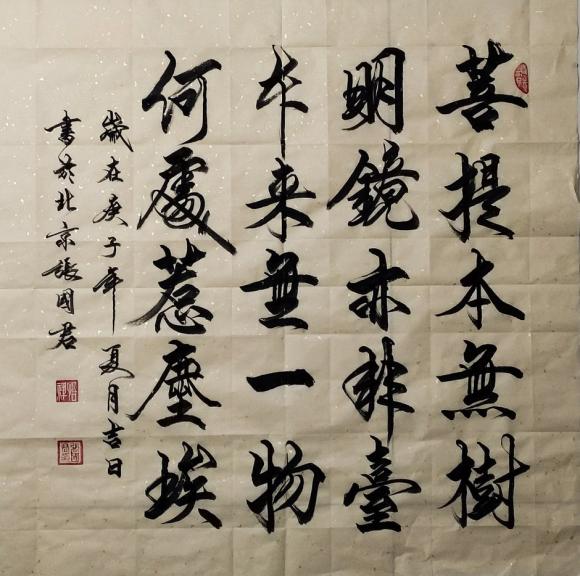 菩提本無樹
明鏡亦非臺
本来無一物
何處惹塵埃
歲在庚子年夏月吉日
書於北京張國君